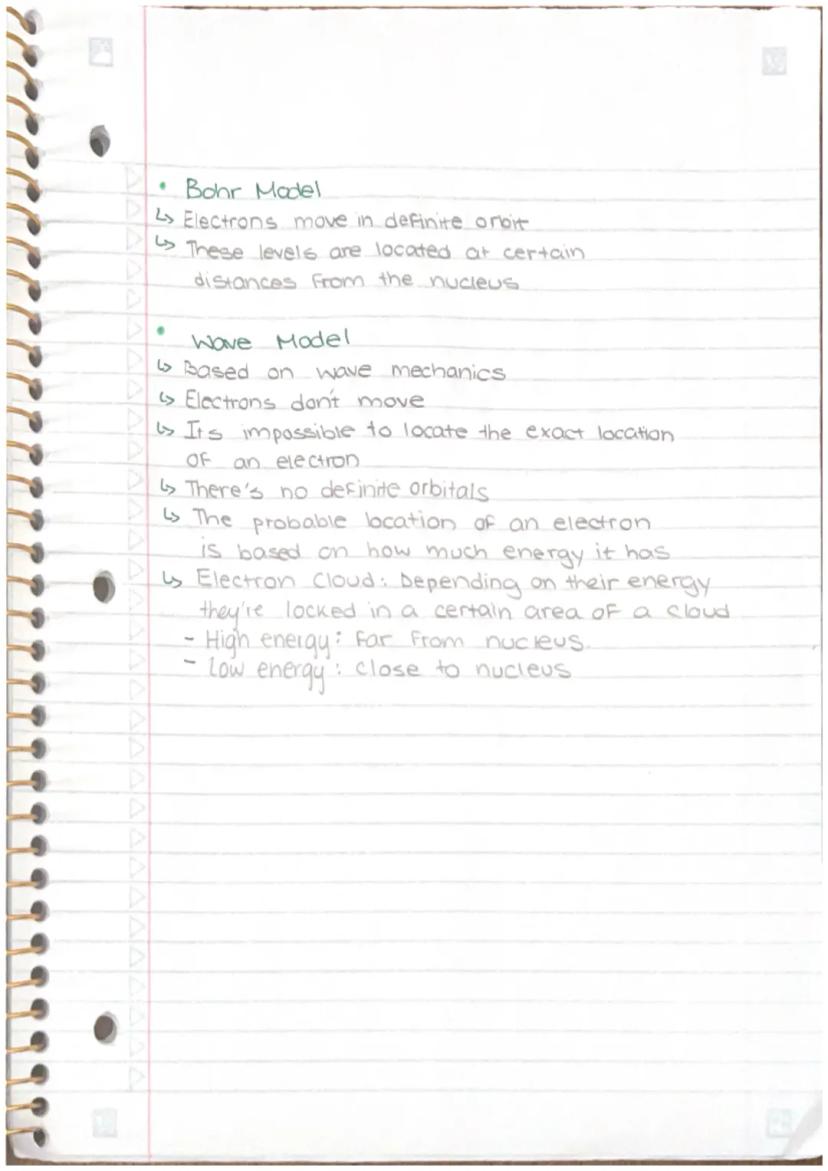 • Bohr Model
↳ Electrons move in definite orbit
↳ These levels are located at certain
distances from the nucleus
• Wave Model
↳ Based on wave mechanics
↳ Electrons don't move
↳ Its impossible to locate the exact location
of an electron
↳ There's no definite orbitals
↳ The probable location of an electron
is based on how much energy it has
↳ Electron Cloud: Depending on their energy
they're locked in a certain area of a cloud
- High energy: far from nucleus.
- Low energy: close to nucleus